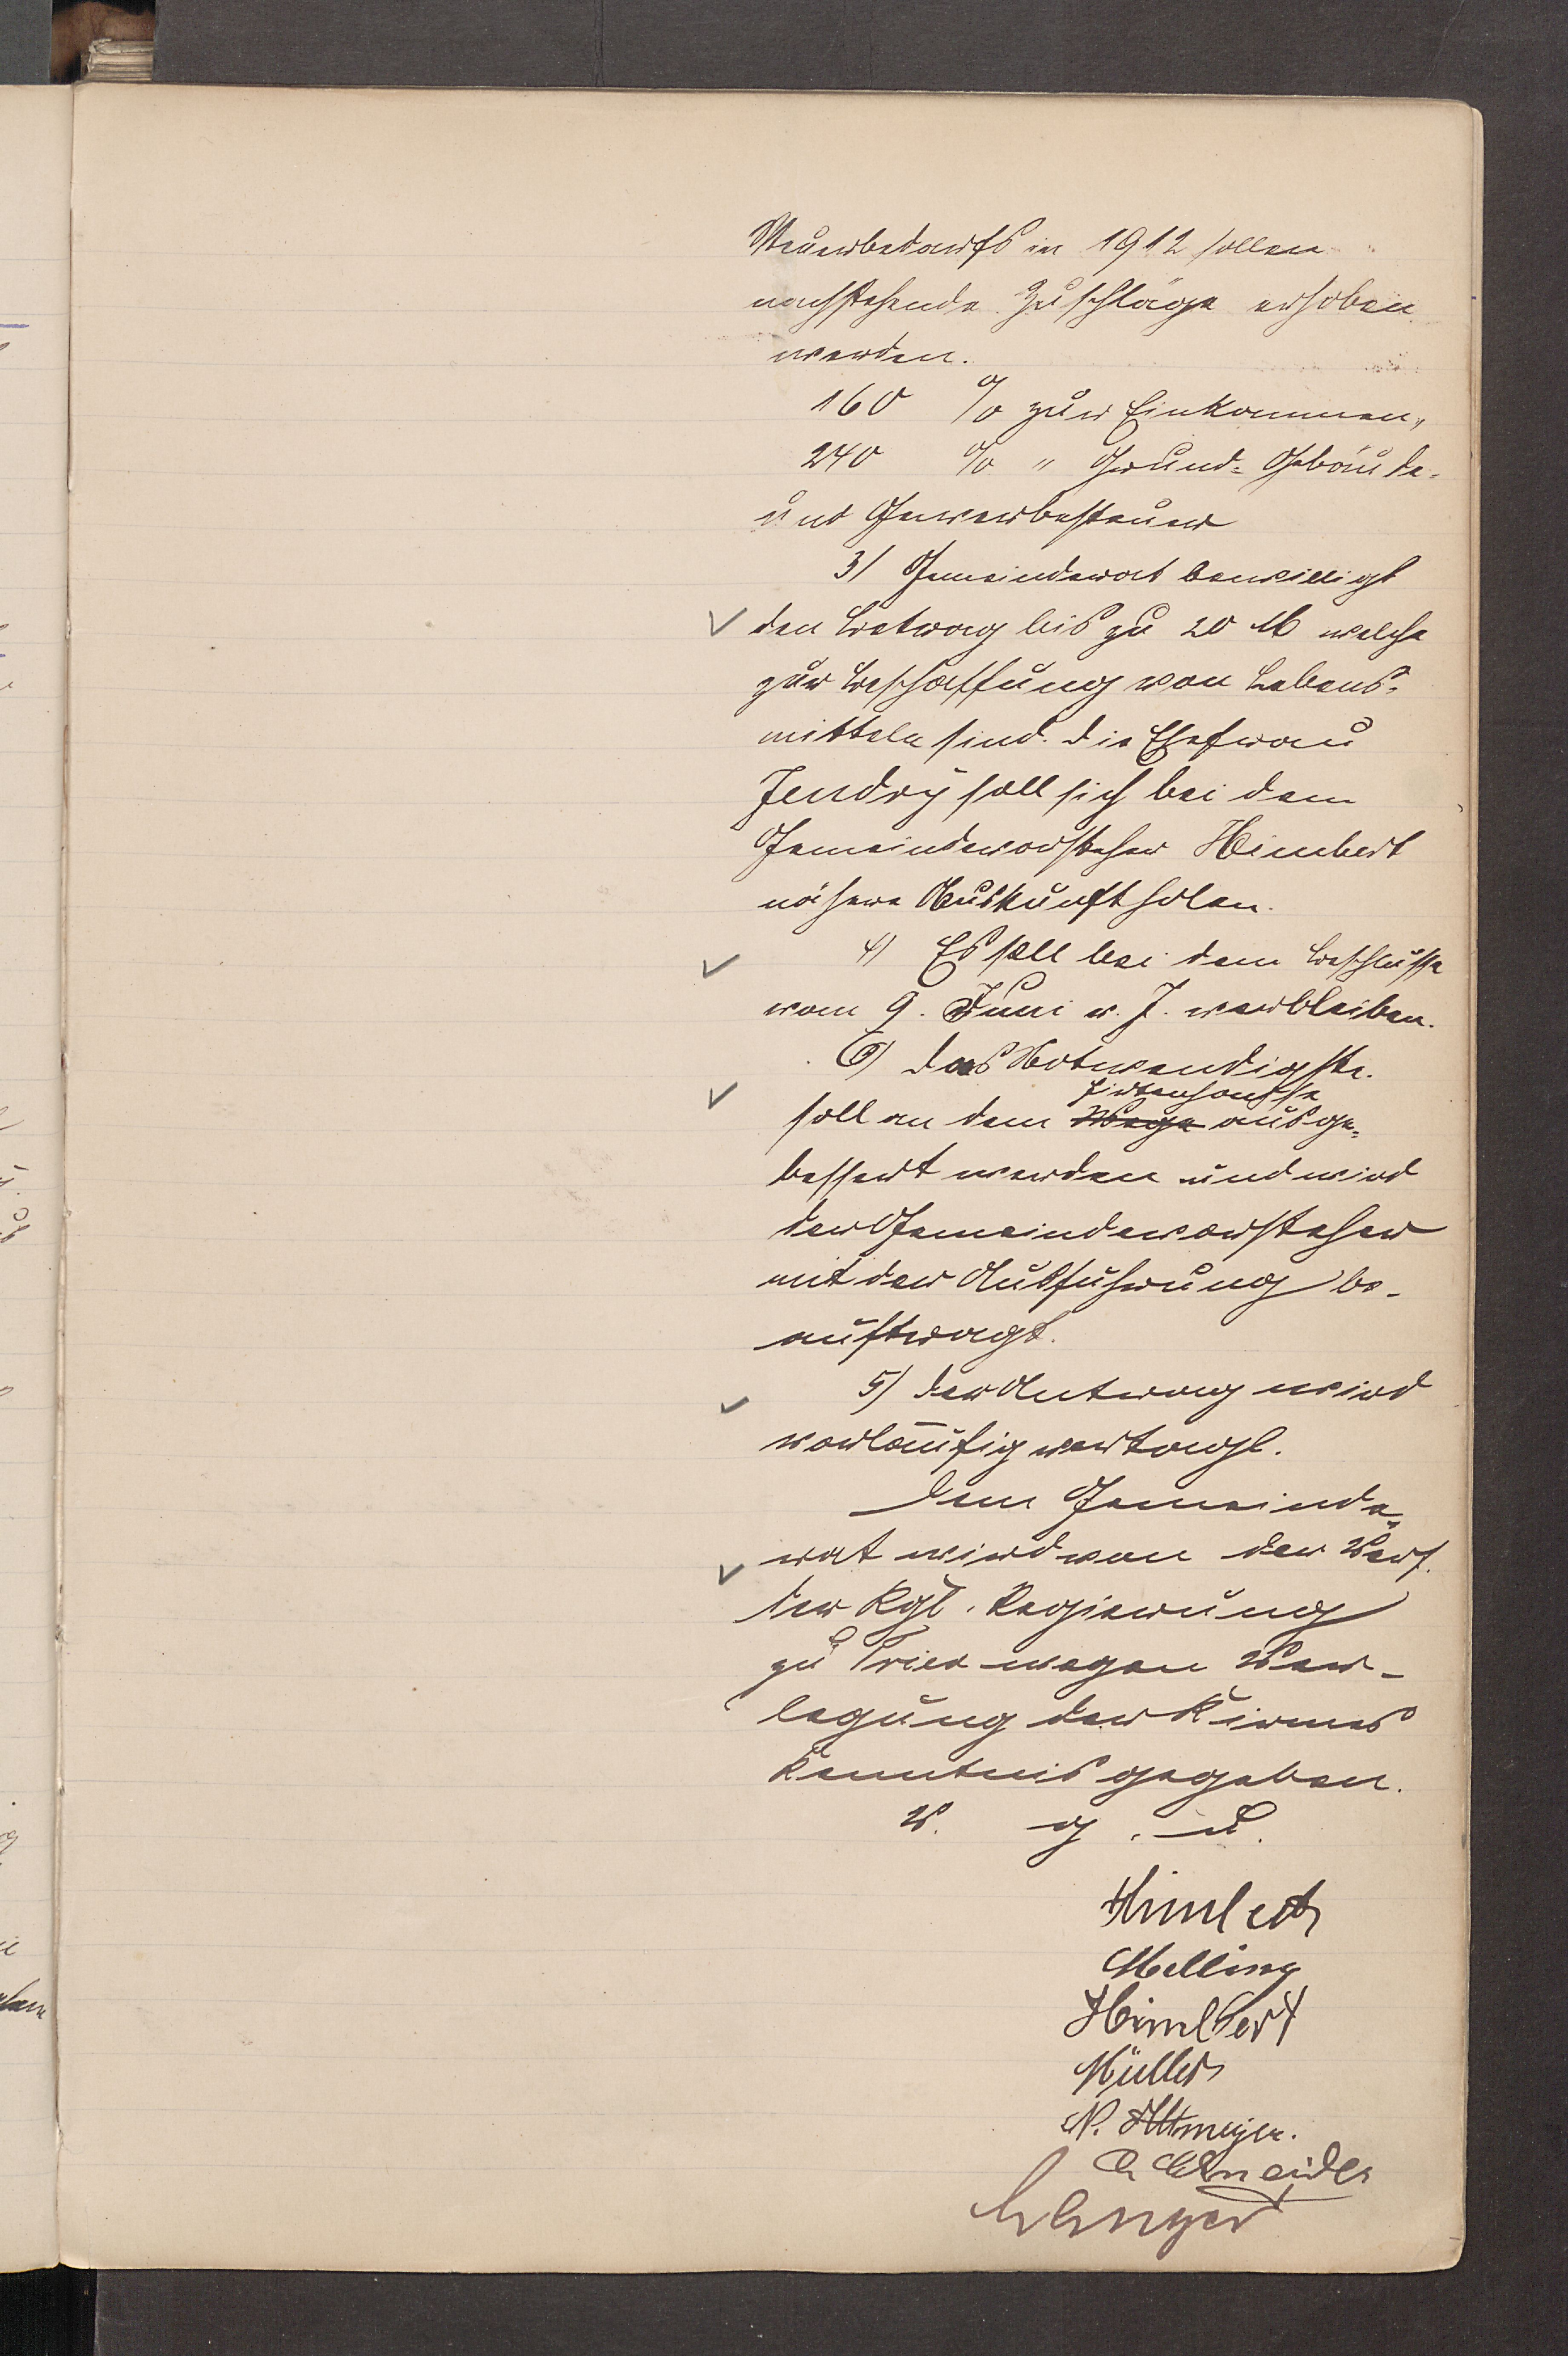 Steuerbedarfs in 1912 sollen
nachstehende Zuschläge erhoben
werden.
160 % zur Einkommen,
240 % " Grund= Gebäude=
und Gewerbesteuer
3) Gemeinderat bewilligt
den Betrag bis zu 20 M welche
zur Beschaffung von Lebens=
mitteln sind. Die Ehefrau
Jendry soll sich bei dem
Gemeindevorsteher Himbert
nähere Auskunft holen.
4) Es soll bei dem Beschlusse
vom 9. Juni v. J. verbleiben.
6) Das Notwendigste
soll an dem Hirtenhause
Wege ausge=
bessert werden und wird
der Gemeindevorsteher
mit der Ausführung be-
auftragt.
5) Der Antrag wird
vorläufig vertagt.
Dem Gemeinde=
rat wird von der Verf.
der Kgl. Regierung
zu Trier wegen Ver-
legung der Kirmes
Kenntnis gegeben.
v. g. u.
Himbert
Melling
Himbert
Müller
N. Altmeyer.
Schneider